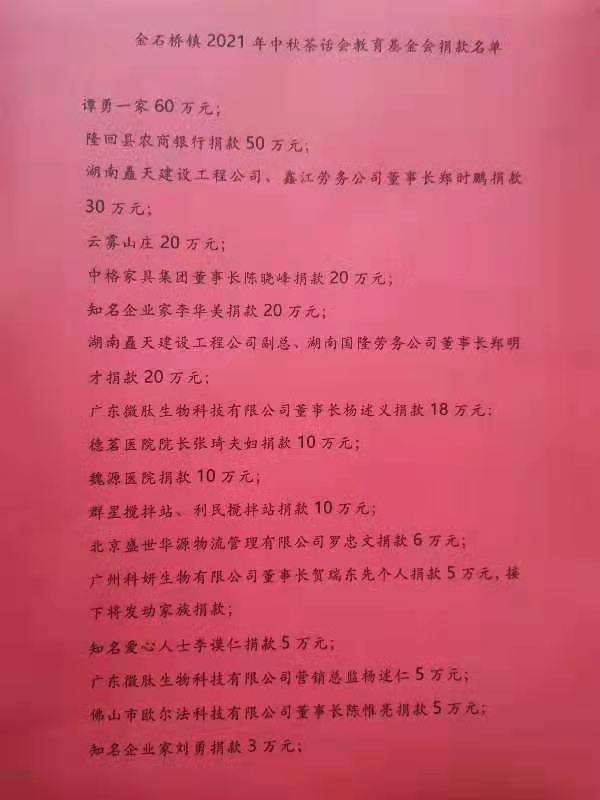 金石桥镇2021年中秋茶话会教育基金会捐款名单
谭勇一家60万元;
隆回县农商银行捐款50万元;
湖南矗天建设工程公司、鑫江劳务公司董事长郑时鹏捐款
30万元;
云雾山庄20万元;
中格家具集团董事长陈晓峰捐款20万元;
知名企业家李华美捐款20万元;
湖南矗天建设工程公司副总、湖南国隆劳务公司董事长郑明
才捐款20万元;
广东微肽生物科技有限公司董事长杨述义捐款18万元;
德茗医院院长张琦夫妇捐款10万元;
魏源医院捐款10万元;
群星搅拌站、利民搅拌站捐款10万元;
北京盛世华源物流管理有限公司罗忠文捐款6万元;
广州科妍生物有限公司董事长贺瑞东先个人捐款5万元,接
下将发动家族捐款;
知名爱心人士李谟仁捐款5万元;
广东微肽生物科技有限公司营销总监杨述仁5万元;
佛山市欧尔法科技有限公司董事长陈惟亮捐款5万元;
知名企业家刘勇捐款3万元;